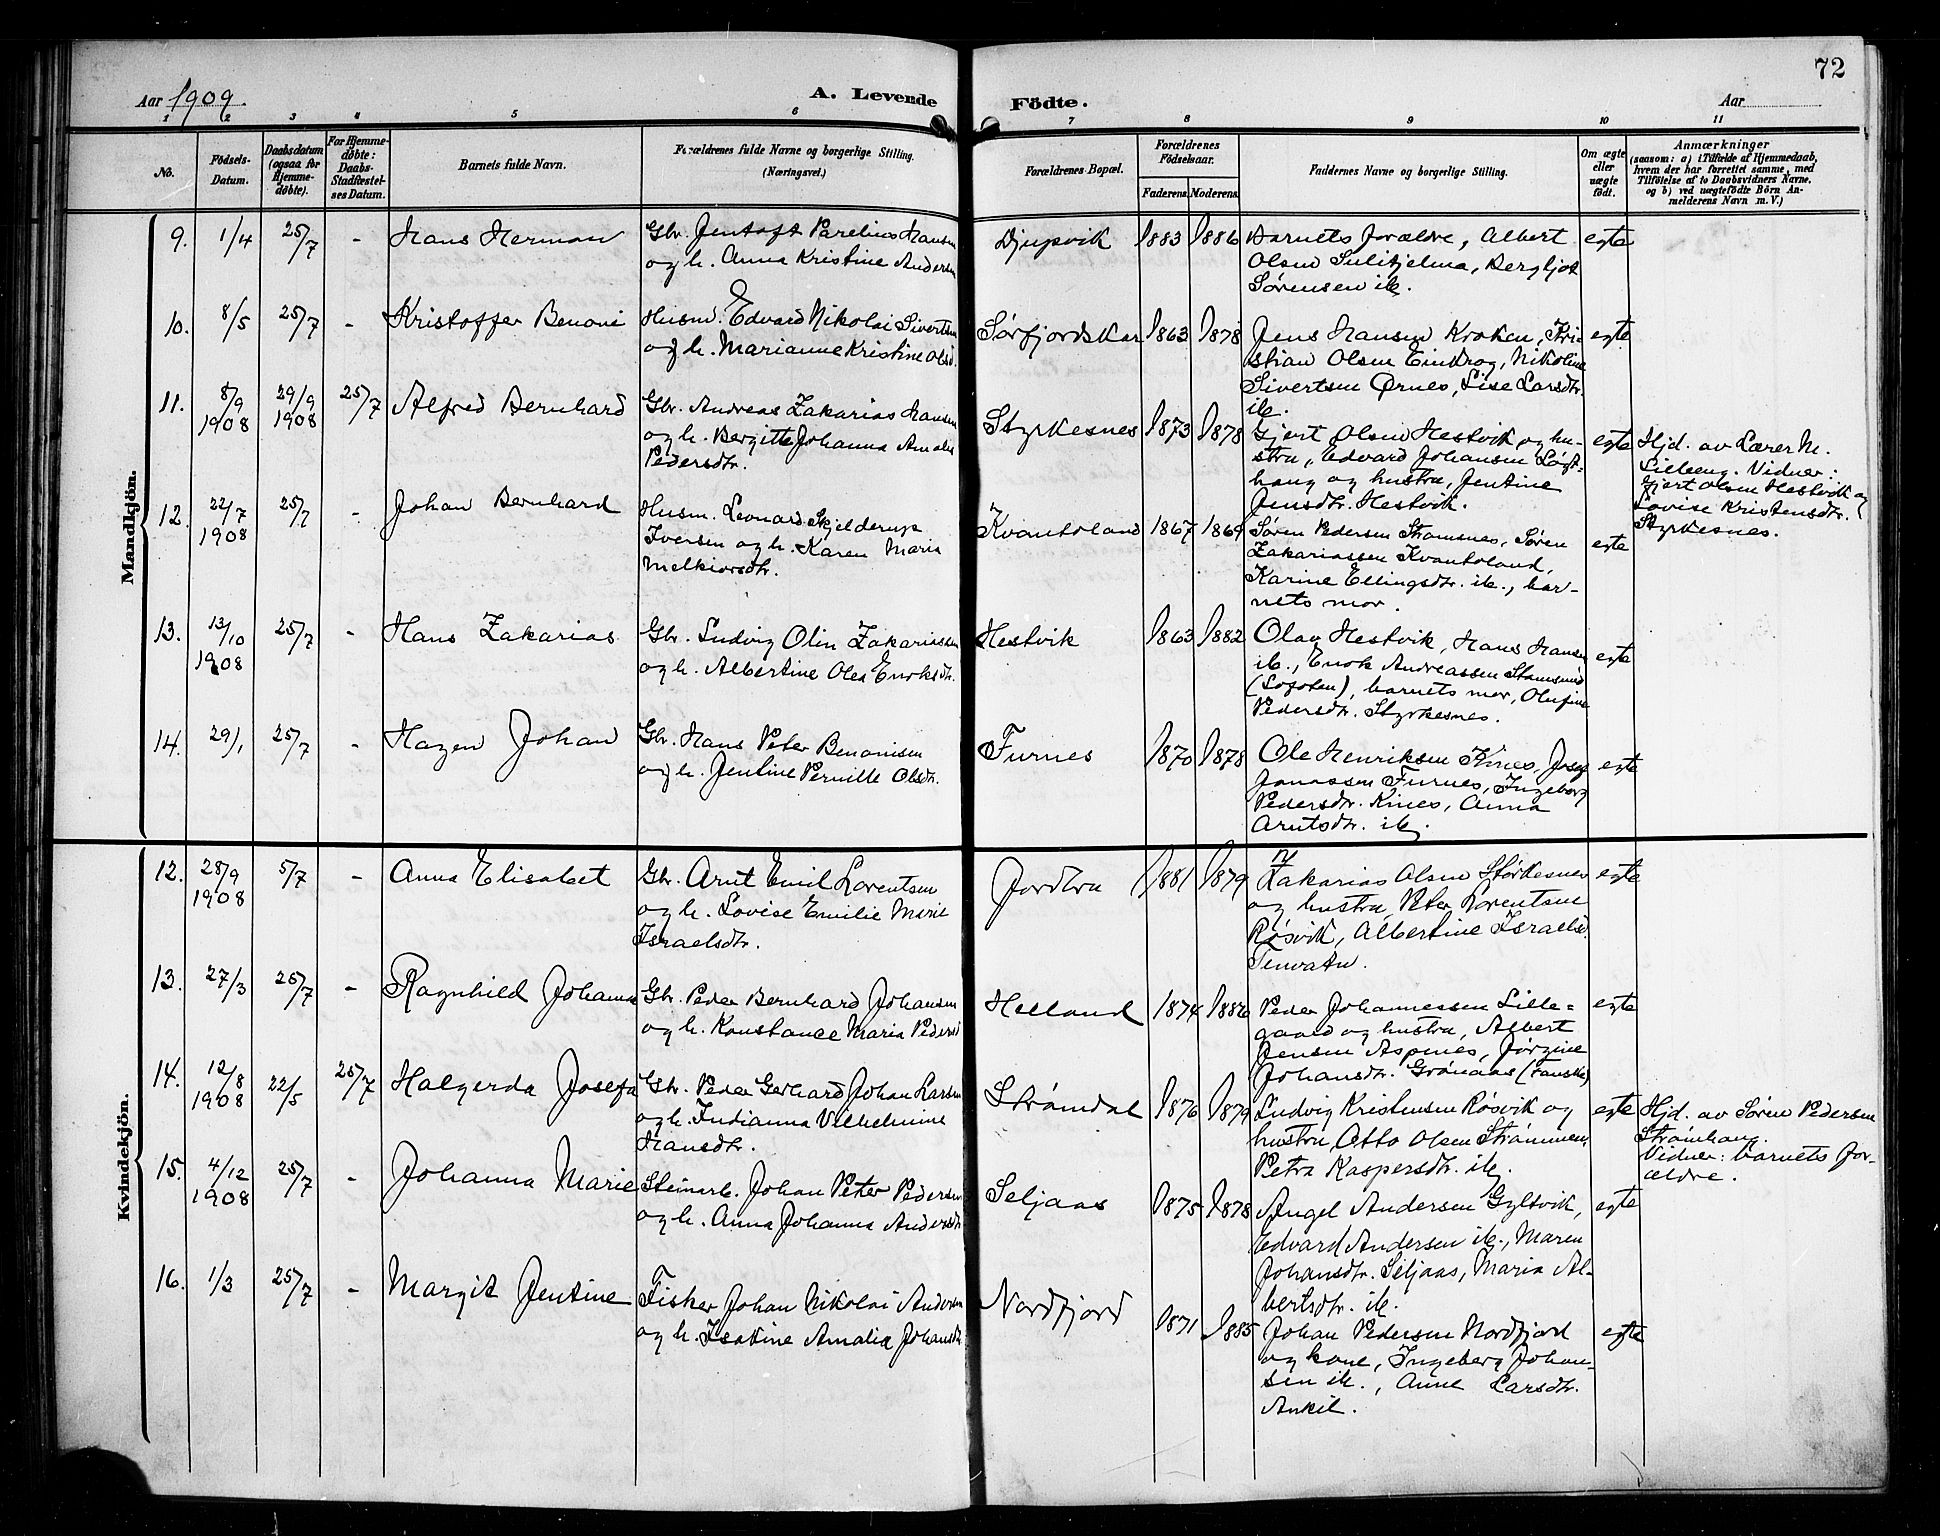 72
Aar 1909. A. Levende Födte. Aar
1 2 3 4 5 6 7 8 9 10 11
No. Födsels-Datum. Daabsdatum (ogsaa for Hjemme-döbte). For Hjemme-döbte: Daabs-Stadfæstel-ses Datum. Barnets fulde Navn. Forældrenes fulde Navne og borgerlige Stilling. (Næringsvei.) Forældrenes Bopæl. Forældrenes Födselsaar. Faderens. Moderens. Faddernes Navne og borgerlige Stilling. Om ægte eller uægte födt. Anmærkninger (saasom: a) i Tilfælde af Hjemmedaab, hvem der har forrettet samme, med Tilföielse af to Daabsvidners Navne, og b) ved uægtefödte Börn An-melderens Navn m. V.)
Mandkjön.
9. 1/4 25/7 - Hans Herman Gbr. Jentoft Parelius Hansen Djupvik 1883 1886 Barnets forældre, Albert egte
og h. Anna Kristine Andersen Olsen Sulitjelma, Bergljot
Sørensen ib.
10. 8/5 25/7 - Kristoffer Benoni Husm. Edvard Nikolai Sivertsen Sørfjordskar 1863 1878 Jens Hansen Kroken, Kri- egte
og h. Marianne Kristine Olsd. stian Olsen Eindrog, Nikoline
Sivertsen Ørnes, Lise Larsdtr.
ib.
11. 8/9 1908 29/9 1908 25/7 Alfred Bernhard Gbr. Andreas Zakarias Hansen Styrkesnes 1873 1878 Gjert Olsen Hestvik og hu- egte Hjd. av Lærer M.
og h. Bergitte Johanna Amalie stru, Edvard Johansen Løgt- Lilleeng. Vidner:
Pedersdtr. haug og hustru, Jentine Gjert Olsen Hestvik og
Jensdtr. Hestvik. Lovise Kristensdtr.
Styrkesnes.
12. 22/7 1908 25/7 - Johan Bernhard Husm. Leonard Skjelderup Kvantoland 1867 1869 Søren Pedersen Stamsnes, Søren egte
Iversen og h. Karen Maria Zakariassen Kvantoland,
Melkiorsdtr. Karine Ellingsdtr. ib., bar-
nets mor.
13. 13/10 1908 25/7 - Hans Zakarias Gbr. Ludvig Olin Zakariassen Hestvik 1863 1882 Olav Hestvik, Hans Hansen egte
og h. Albertine Olea Enoksdtr. ib., Enok Andreassen Stamsund
(Lofoten), barnets mor, Olufine
Pedersdtr. Styrkesnes.
14. 29/1 25/7 - Hagen Johan Gbr. Hans Peter Benonisen Furnes 1870 1878 Ole Henriksen Kines, Josef egte
og h. Jentine Pernille Olsdtr. Jonassen Furnes, Ingeborg
Pedersdtr. Kines, Anna
Arntsdtr. ib.
Kvindekjön.
12. 28/9 1908 5/7 - Anna Elisabet Gbr. Arnt Emil Lorentsen Jordbru 1881 1879 Zakarias Olsen Størkesnes egte
og h. Lovise Emilie Marie og hustru, Peter Lorentsen
Israelsdtr. Røsvik, Albertine Israelsd.
Tenvatn.
13. 27/3 25/7 - Ragnhild Johanna Gbr. Peder Bernhard Johansen Helland 1874 1886 Peder Johannessen Lille- egte
og h. Konstance Maria Pedersd gaard og hustru, Albert
Jensen Aspenes, Jørgine
Johansdtr. Grønaas (Fauske)
14. 12/8 1908 22/5 25/7 Halgerda Josefa Gbr. Peder Gerhard Johan Larsen Strømdal 1876 1879 Ludvig Kristensen Røsvik og egte Hjd. av Søren Pedersen
og h. Indianna Vilhelmine hustru, Otto Olsen Strømmen, Strømhaug.
Hansdtr. Petra Kaspersdtr. ib. Vidner: barnets for-
ældre.
15. 4/12 1908 25/7 - Johanna Marie Steinarb. Johan Peter Pedersen Seljaas 1875 1878 Angel Andersen Gyltvik, egte
og h. Anna Johanna Andersdtr Edvard Andersen ib., Maren
Johansdtr. Seljaas, Maria Al-
bertsdtr. ib.
16. 1/3 25/7 - Margit Jentine Fisker Johan Nikolai Andersen Nordfjord 1871 1885 Johan Pedersen Nordfjord egte
og h. Isakine Amalia Johansdtr og kone, Ingeberg Johan-
sen ib., Anne Larsdtr.
Ankil.